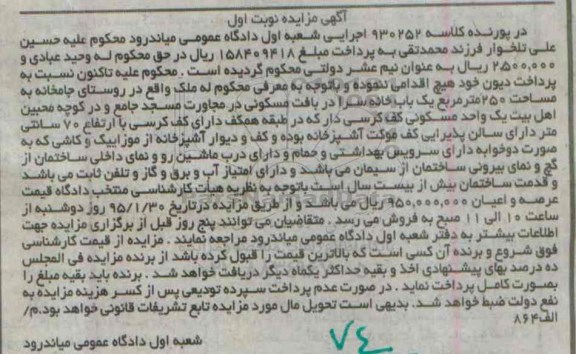 آگهی مزایده نوبت اول
در پورنده کلاسه ۹۳۰۲۵۲ اجرایی شعبه اول دادگاه عمومی میاندرود محکوم علیه حسین
علی تلخوار فرزند محمدتقی به پرداخت مبلغ ۱۵۸۴۰۹۴۱۸ ریال در حق محکوم له وحید عبادی و
۲۵۰۰,۰۰۰ ریال به عنوان نیم عشر دولتی محکوم گردیده است . محکوم علیه تاکنون نسبت به
پرداخت دیون خود هیچ اقدامی ننموده و باتوجه به معرفی محکوم له ملک واقع در روستای جامخانه به
مساحت ۲۵۰مترمربع یک باب خانه سرا در بافت مسکونی در مجاورت مسجد جامع و در کوچه محبین
اهل بیت یک واحد مسکونی کف کرسی دار که در طبقه همکف دارای کف کرسی با ارتفاع ۷۰ سانتی
متر دارای سالن پذیرایی کف موکت آشپزخانه بوده و کف و دیوار آشپزخانه از موزاییک و کاشی که به
صورت دوخوابه دارای سرویس بهداشتی و حمام و دارای درب ماشین رو و نمای داخلی ساختمان از
گچ و نمای بیرونی ساختمان از سیمان می باشد و دارای امتیاز آب و برق و گاز و تلفن ثابت می باشد
و قدمت ساختمان بیش از بیست سال است باتوجه به نظریه هیأت کارشناسی منتخب دادگاه قیمت
عرصه و اعیان ۹۵۰,۰۰۰,۰۰۰ ریال می باشد و از طریق مزایده درتاریخ ۹۵/۱/۳۰ روز دوشنبه از
ساعت ۱۰ الی ۱۱ صبح به فروش می رسد . متقاضیان می توانند پنج روز قبل از برگزاری مزایده جهت
اطلاعات بیشتر به دفتر شعبه اول دادگاه عمومی میاندرود مراجعه نمایند . مزایده از قیمت کارشناسی
فوق شروع و برنده آن کسی است که بالاترین قیمت را قبول کرده باشد از برنده مزایده فی المجلس
ده درصد بهای پیشنهادی اخذ و بقیه حداکثر یکماه دیگر دریافت خواهد شد . برنده باید بقیه مبلغ را
بصورت کامل پرداخت نماید . در صورت عدم پرداخت سپرده تودیعی پس از کسر هزینه مزایده به
نفع دولت ضبط خواهد شد. بدیهی است تحویل مال مورد مزایده تابع تشریفات قانونی خواهد بود.م/
الف۸۶۴
شعبه اول دادگاه عمومی میاندرود
۷۴